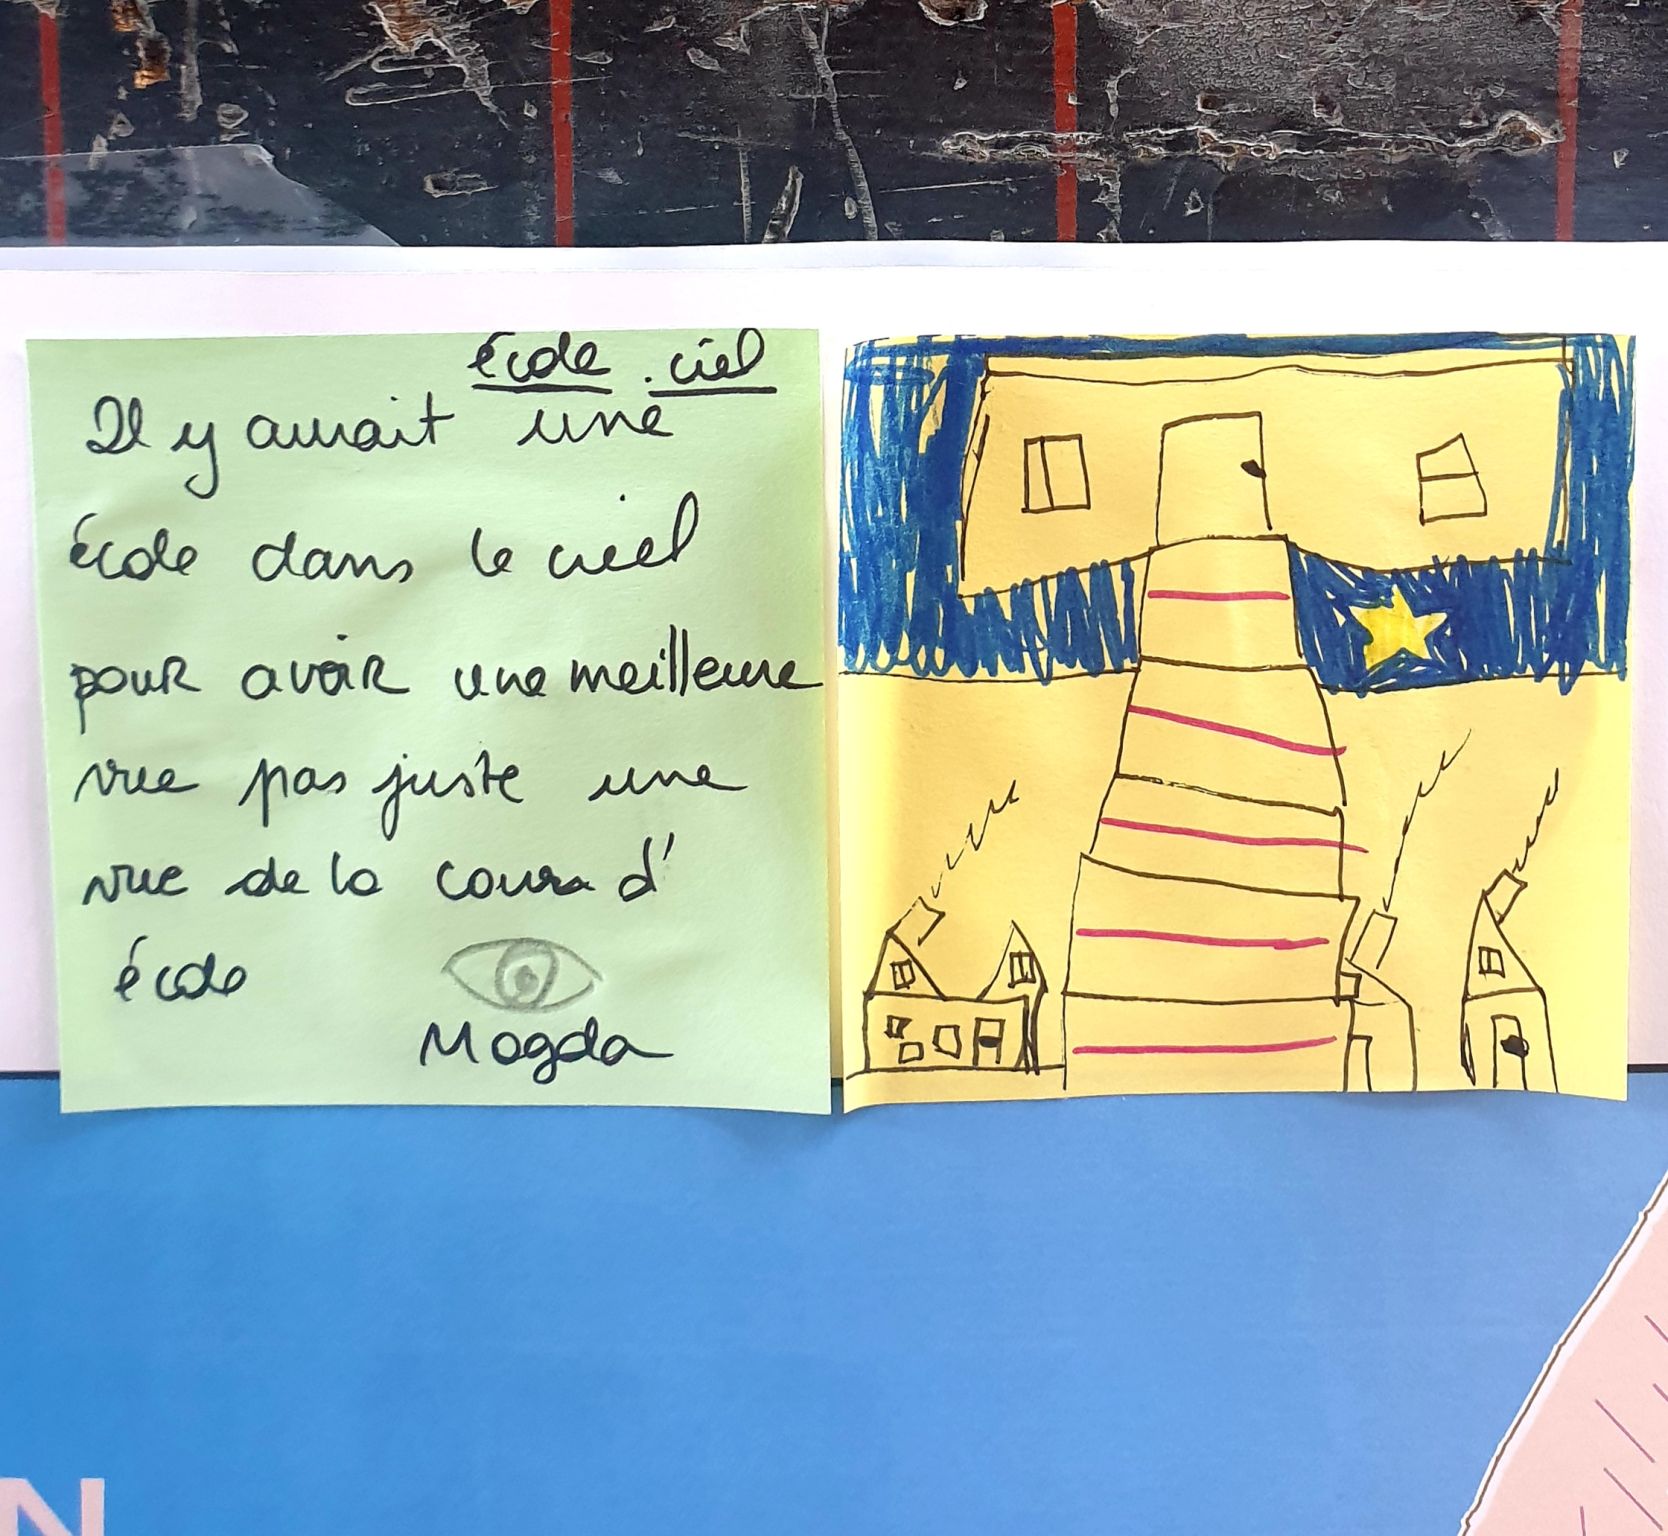 école . ciel
Il y aurait une
école dans le ciel
pour avoir une meilleure
vue pas juste une
vue de la cour d'
école
Magda
N